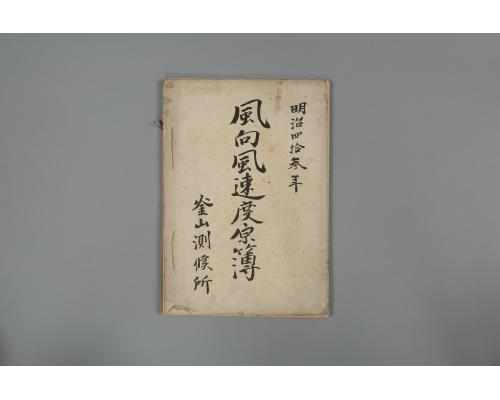 明治四拾参年
風向風速度原簿
釜山測候所